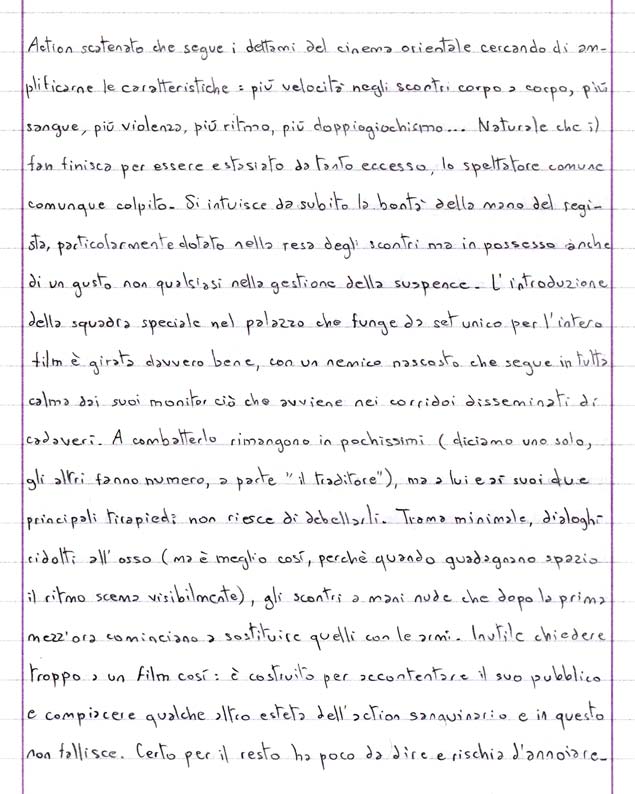 Action scatenato che segue i dettami del cinema orientale cercando di am-
plificarne le caratteristiche : più velocità negli scontri corpo a corpo, più
sangue, più violenza, più ritmo, più doppiogiochismo... Naturale che il
fan finisca per essere estasiato da tanto eccesso, lo spettatore comune
comunque colpito. Si intuisce da subito la bontà della mano del regi-
sta, particolarmente dotato nella resa degli scontri ma in possesso anche
di un gusto non qualsiasi nella gestione della suspence. L'introduzione
della squadra speciale nel palazzo che funge da set unico per l'intero
film è girata davvero bene, con un nemico nascosto che segue in tutta
calma dai suoi monitor ciò che avviene nei corridoi disseminati di
cadaveri. A combatterlo rimangono in pochissimi (diciamo uno solo,
gli altri fanno numero, a parte "il traditore"), ma a lui e ai suoi due
principali tirapiedi non riesce di debellarli. Trama minimale, dialoghi
ridotti all'osso (ma è meglio così, perchè quando guadagnano spazio
il ritmo scema visibilmente), gli scontri a mani nude che dopo la prima
mezz'ora cominciano a sostituire quelli con le armi. Inutile chiedere
troppo a un film così: è costruito per accontentare il suo pubblico
e compiacere qualche altro esteta dell'action sanguinario e in questo
non fallisce. Certo per il resto ha poco da dire e rischia d'annoiare.